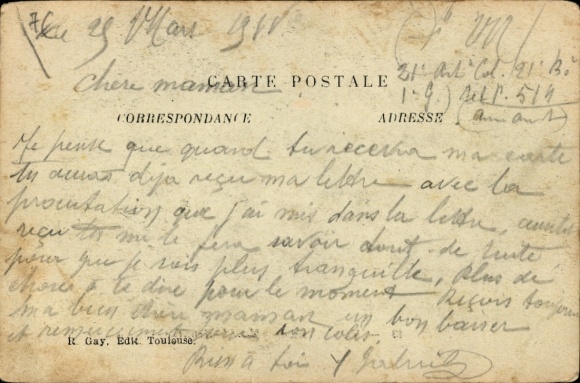 le 25 Mars 191
F. M
Chère maman
CARTE POSTALE
21e Art Col. 91e Bie
1e G. Sect P. 514
CORRESPONDANCE
ADRESSE
Je pense que quand tu recevra ma carte
tu auras déja reçu ma lettre avec la
procuration que j'ai mis dans la lettre,
reçu tu me le fera savoir tout de suite
pour que je sois plus tranquille, Plus de
chose à te dire pour le moment Reçois toujours
ma bien chère maman un bon baiser
et remerciement ton colis.
R. Gay, Edit. Toulouse.
Rien à toi